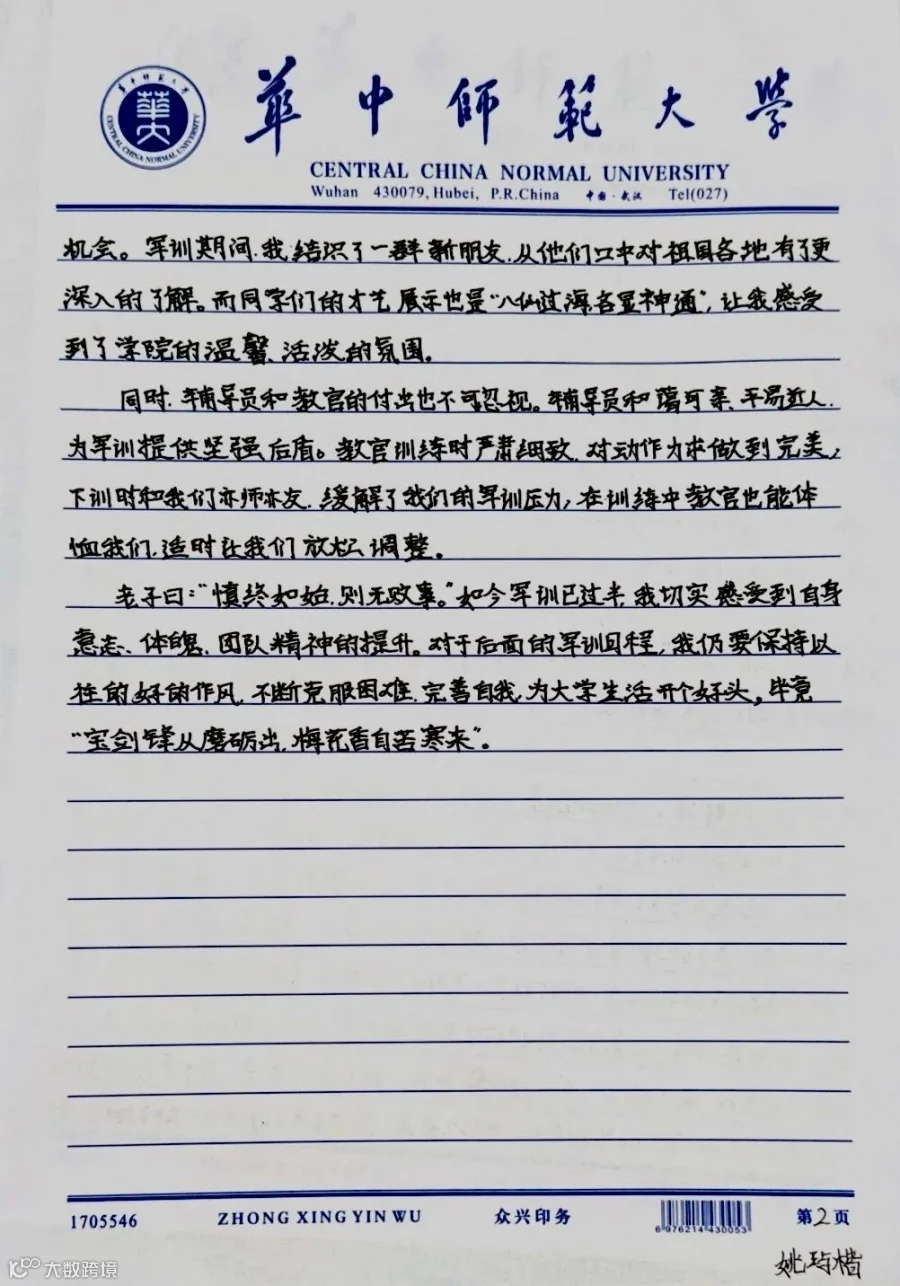 華中師範大學
CENTRAL CHINA NORMAL UNIVERSITY
華中師範大學
CENTRAL CHINA NORMAL UNIVERSITY
Wuhan 430079, Hubei, P.R.China 中国·武汉 Tel(027)
机会。军训期间,我结识了一群新朋友,从他们口中对祖国各地有了更
深入的了解。而同学们的才艺展示也是“八仙过海,各显神通”,让我感受
到了学院的温馨、活泼的氛围。
同时,辅导员和教官的付出也不可忽视。辅导员和蔼可亲、平易近人,
为军训提供坚强后盾。教官训练时严肃细致,对动作力求做到完美,
下训时和我们亦师亦友,缓解了我们的军训压力,在训练中教官也能体
恤我们,适时让我们放松调整。
老子曰:“慎终如始,则无败事。”如今军训已过半,我切实感受到自身
意志、体魄、团队精神的提升。对于后面的军训日程,我仍要保持以
往的好的作风,不断克服困难,完善自我,为大学生活开个好头。毕竟
“宝剑锋从磨砺出,梅花香自苦寒来”。
1705546 ZHONG XING YIN WU 众兴印务 6976214430053 第2页
大数跨境